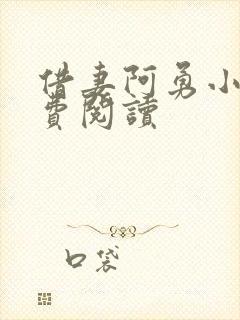 借妻阿勇小
費閱讀
口袋